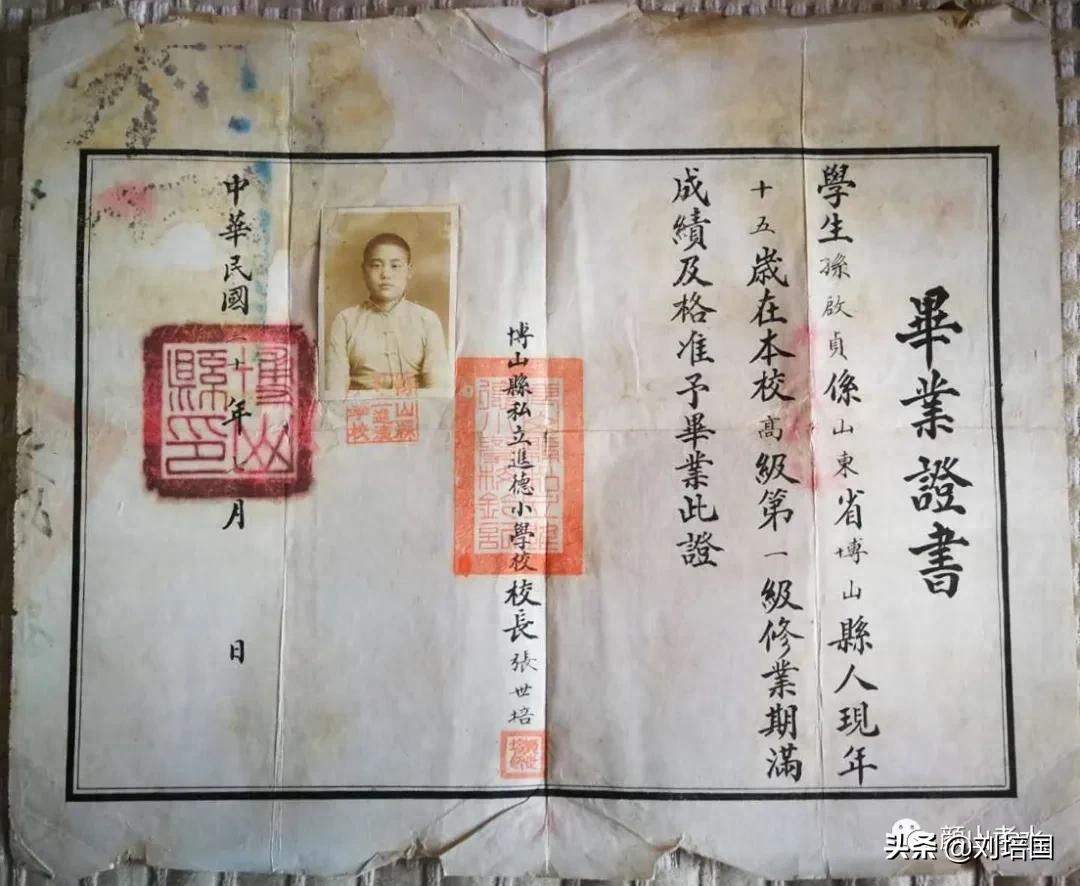 畢業證書
學生孫啟貞係山東省博山縣人現年
十五歲在本校高級第一級修業期滿
成績及格准予畢業此證
博山縣私立進德小學校校長張世培
中華民國二十年 月 日
博山縣印
頭条 @刘培国
颜山老水